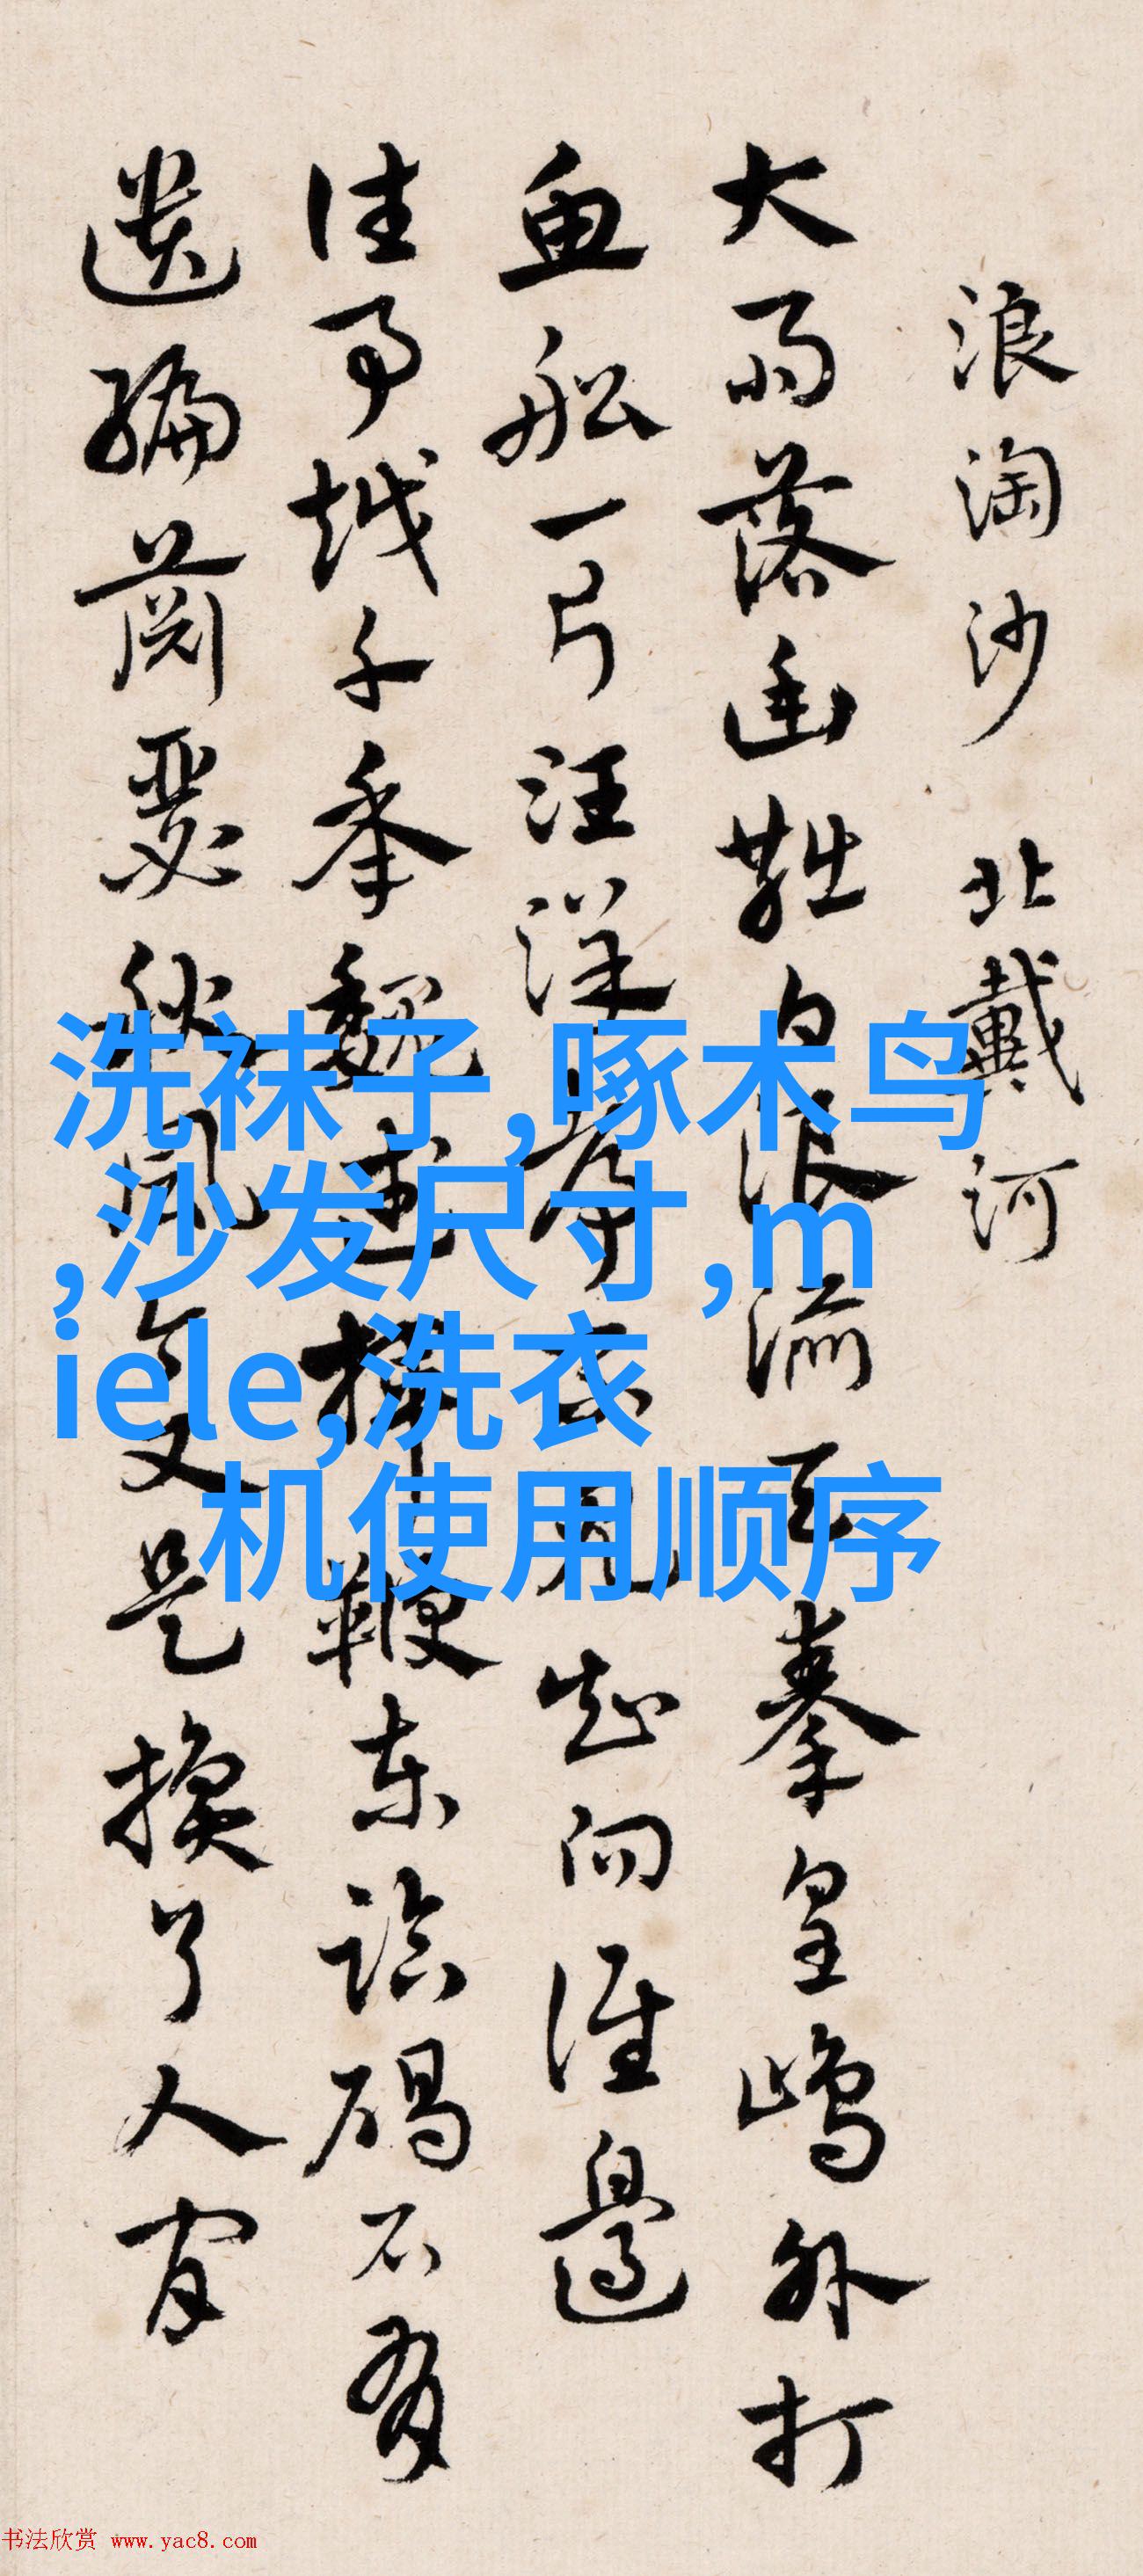 浪淘沙 北戴河
大雨落幽燕白浪滔天秦皇島外打
魚船一片汪洋都不見知向誰邊
往事越千年魏武揮鞭東臨碣石有
遺編蕭瑟秋風今又是換了人間
洗袜子,啄木鸟
,沙发尺寸,m
iele,洗衣
机使用顺序
书法欣赏 www.yac8.com